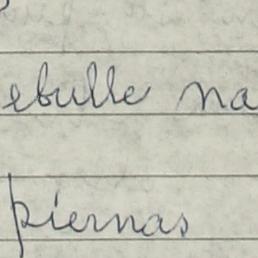 ebulle na
piernas